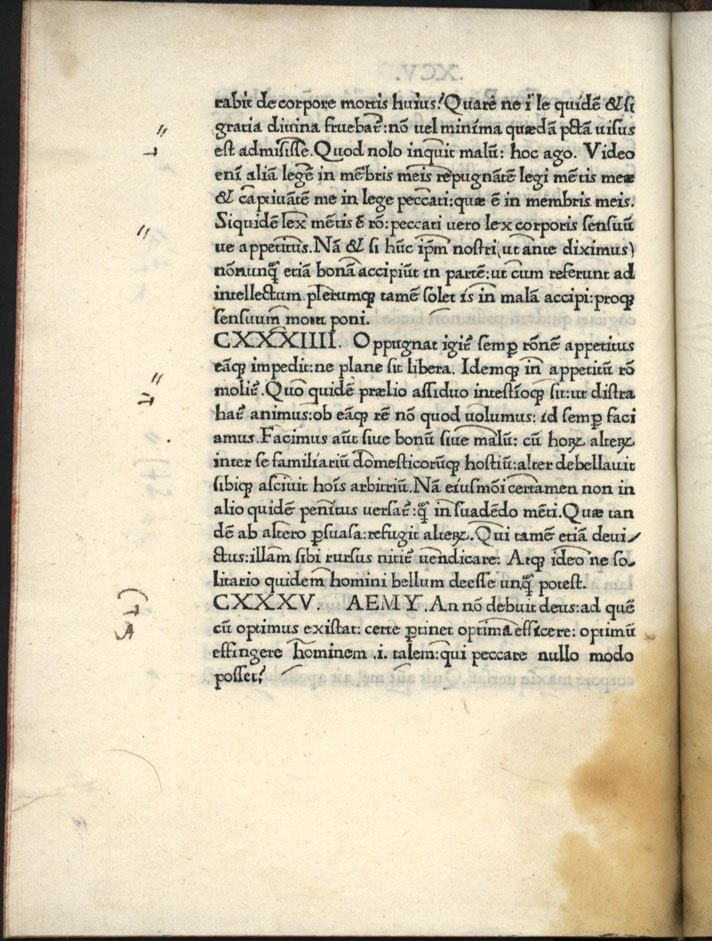 rabit de corpore mortis huius? Quarē ne i le quidē &si
gratia diuina fruebat̄: nō uel minima quædā pctā uisus
est admisisse. Quod nolo inquit malū: hoc ago. Video
enī aliā legē in mēbris meis repugnātē legi mētis meæ
& captiuātē me in lege peccati: quæ ē in membris meis.
Siquidē lex mētis ē rō: peccati uero lex corporis sensuū
ue appetitus. Nā & si hūc ipm̄ nostri (ut ante diximus)
nōnunq̄ etiā bonā accipiūt in partē: ut cum referunt ad
intellectum plerumqꝫ tamē solet is in malā accipi: proqꝫ
sensuum motu poni.
CXXXIIII. Oppugnat igit̄ semꝑ rōnē appetitus
eāqꝫ impedit: ne plane sit libera. Idemqꝫ in appetitū rō
molit̄. Quo quidē prælio assiduo intestīoqꝫ sit: ut distra
hat̄ animus: ob eāqꝫ rē nō quod uolumus: id semꝑ faci
amus. Facimus aūt siue bonū siue malū: cū hoꝝ alteꝝ
inter se familiariū domesticorūqꝫ hostiū: alter debellauit
sibiqꝫ asciuit hoīs arbitriū. Nā eiusmōi certamen non in
alio quidē penitus uersat̄: q̄ in suadēdo mēti. Quæ tan
dē ab altero ꝑsuasa: refugit alteꝝ. Qui tamē etiā deui/
ctus: illam sibi rursus nitit̄ uendicare: Atqꝫ ideo ne so/
litario quidem homini bellum deesse unq̄ potest.
CXXXV. AEMY. An nō debuit deus: ad quē
cū optimus existat: certe ꝑtinet optima efficere: optimū
effingere hominem .i. talem: qui peccare nullo modo
posset?